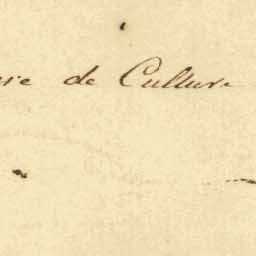 re de Culture